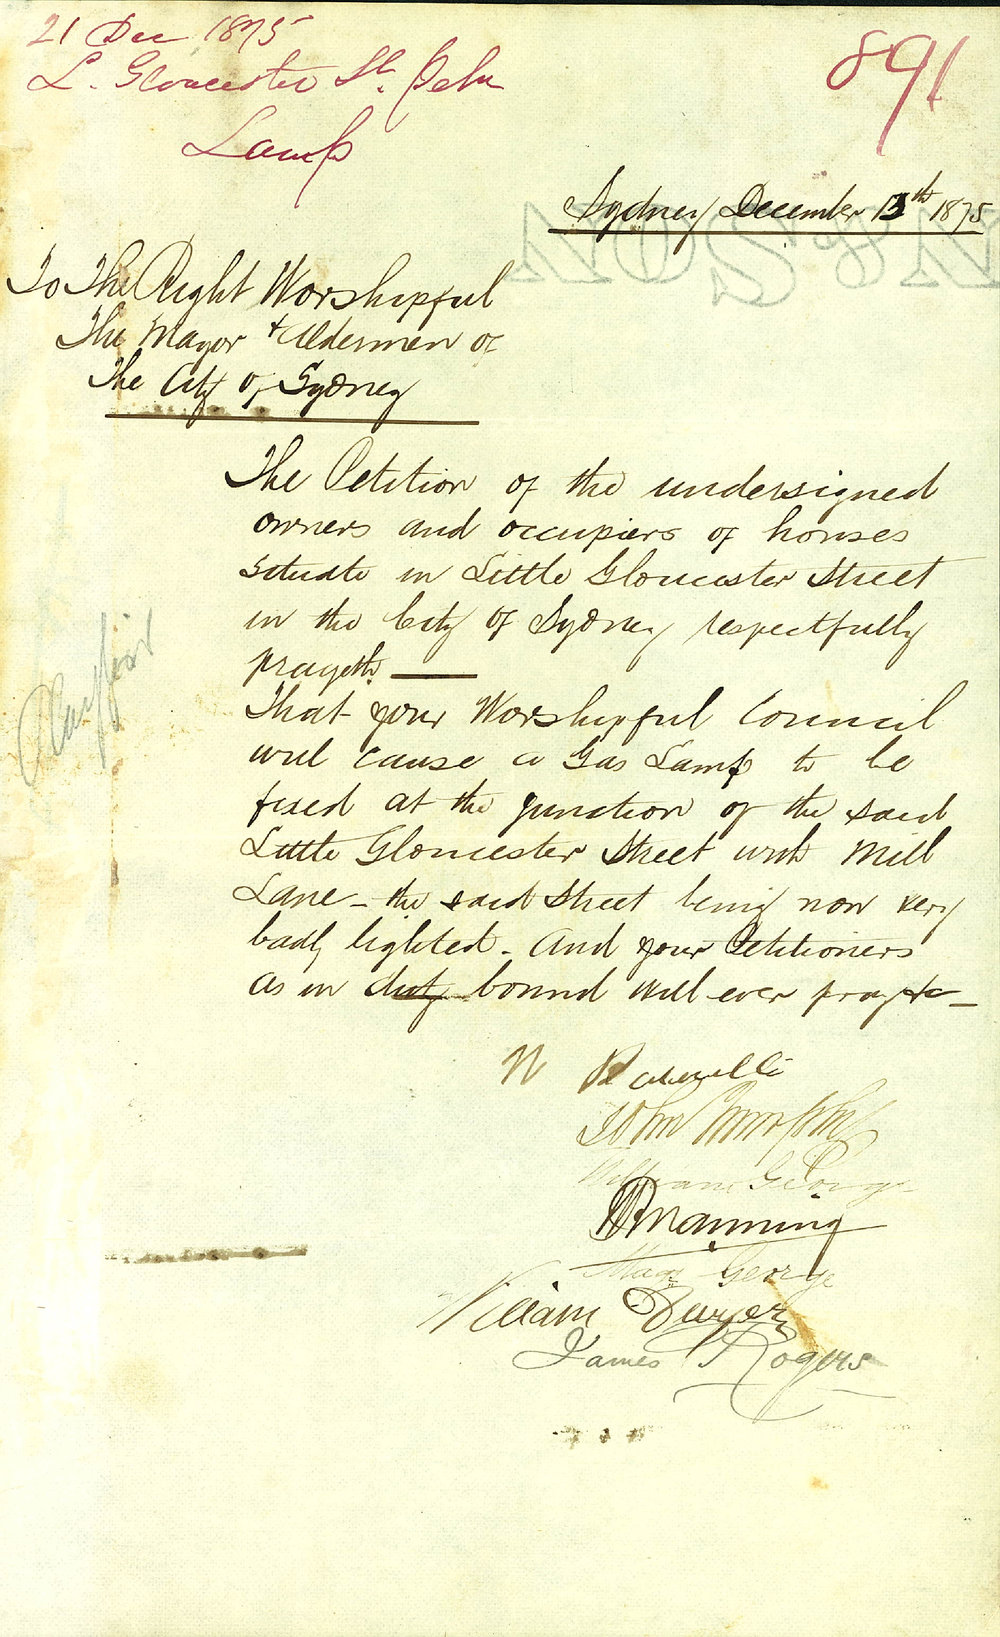 21 Dec 1875
L. Gloucester St. Petn
Lamp
891
Sydney December 13th 1875
To The Right Worshipful
The Mayor & Aldermen of
The City of Sydney
The Petition of the undersigned
owners and occupiers of houses
situate in Little Gloucester Street
in the City of Sydney respectfully
prayeth
That your Worshipful Council
will cause a Gas Lamp to be
fixed at the junction of the said
Little Gloucester Street with Mill
Lane - the said Street being now very
badly lighted. And your Petitioners
as in duty bound will ever pray &c
N
John Murphy
William George
Manning
Mary George
William Dwyer
James Rogers